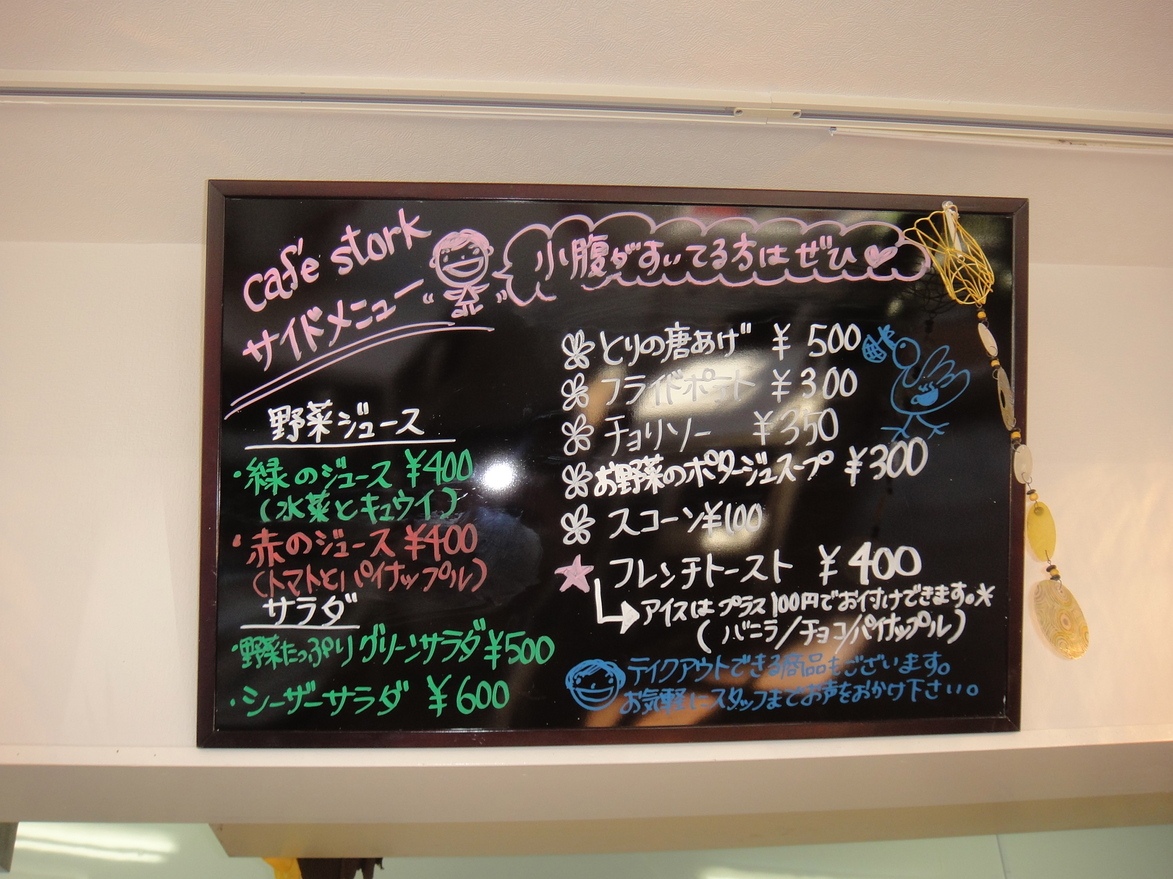 cafe stork
サイドメニュー
小腹がすいてる方はぜひ
野菜ジュース
・緑のジュース ¥400
(水菜とキュウイ)
・赤のジュース ¥400
(トマトとパイナップル)
サラダ
・野菜たっぷりグリーンサラダ ¥500
・シーザーサラダ ¥600
とりの唐あげ ¥500
フライドポテト ¥300
チョリソー ¥350
お野菜のポタージュスープ ¥300
スコーン ¥100
フレンチトースト ¥400
アイスはプラス100円でお付けできます。
(バニラ/チョコ/パイナップル)
テイクアウトできる商品もございます。
お気軽にスタッフまでお声をおかけ下さい。